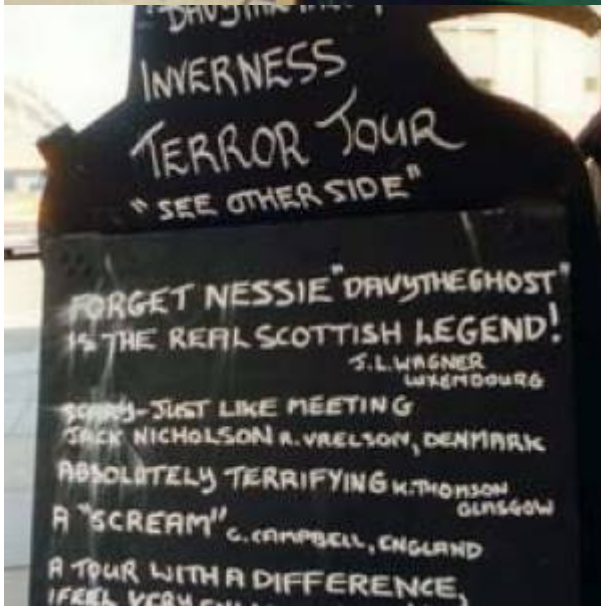 INVERNESS
TERROR TOUR
"SEE OTHER SIDE"
FORGET NESSIE "DAVYTHEGHOST"
IS THE REAL SCOTTISH LEGEND!
J.L. WAGNER
LUXEMBOURG
SCARY-JUST LIKE MEETING
JACK NICHOLSON R. VAELSON, DENMARK
ABSOLUTELY TERRIFYING K. THOMSON
GLASGOW
A "SCREAM" G. CAMPBELL, ENGLAND
A TOUR WITH A DIFFERENCE,
I FEEL VERY